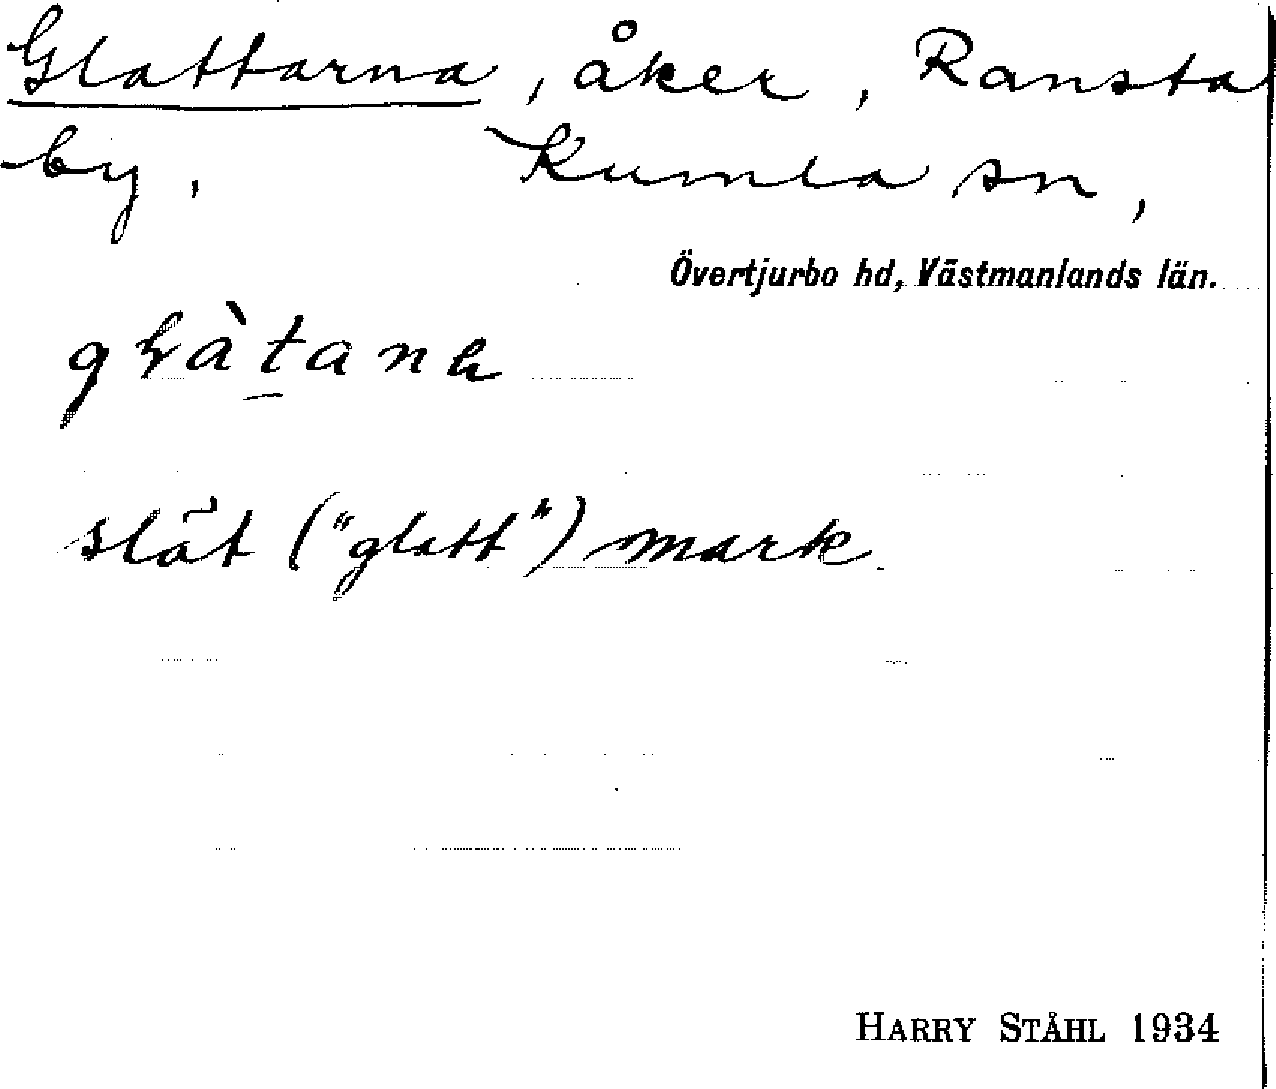 Glattarna, åker, Ransta
by, Kumla sn,
Övertjurbo hd, Västmanlands län.
slät ("glatt") mark.
HARRY STÅHL 1934